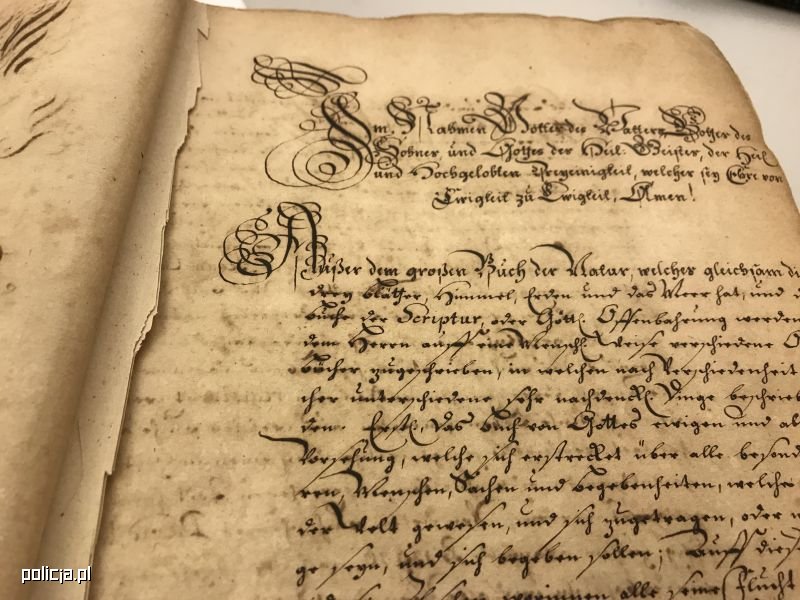 Im Nahmen Gottes des Vatters, Gottes des
Sohnes, und Gottes des Heil: Geistes, der Heil
und Hochgelobten Dreyeinigkeit, welcher sey Ehre von
Ewigkeit zu Ewigkeit, Amen!
Außer dem großen Buch der Natur, welches gleichsam
drey blätter, Himmel, Erden und das Meer hat, und
buche der Scriptur, oder Göttl. Offenbahrung werden
dem Herrn auff eine Menschl. Weise verschiedene
bücher zugeschrieben, in welchen nach Verschiedenheit
cher unterschiedene sehr nachdenckl. Dinge beschrie
den. Erstl. das buch von Gottes ewigen und
Vorsehung, welche sich erstrecket über alle besond
ren, Menschen, Sachen und begebenheiten, welche
der Welt gewesen, und sich zugetragen, oder
ge seyn, und sich begeben sollen; Auff diese
worinnen alle seine Flucht
policja.pl